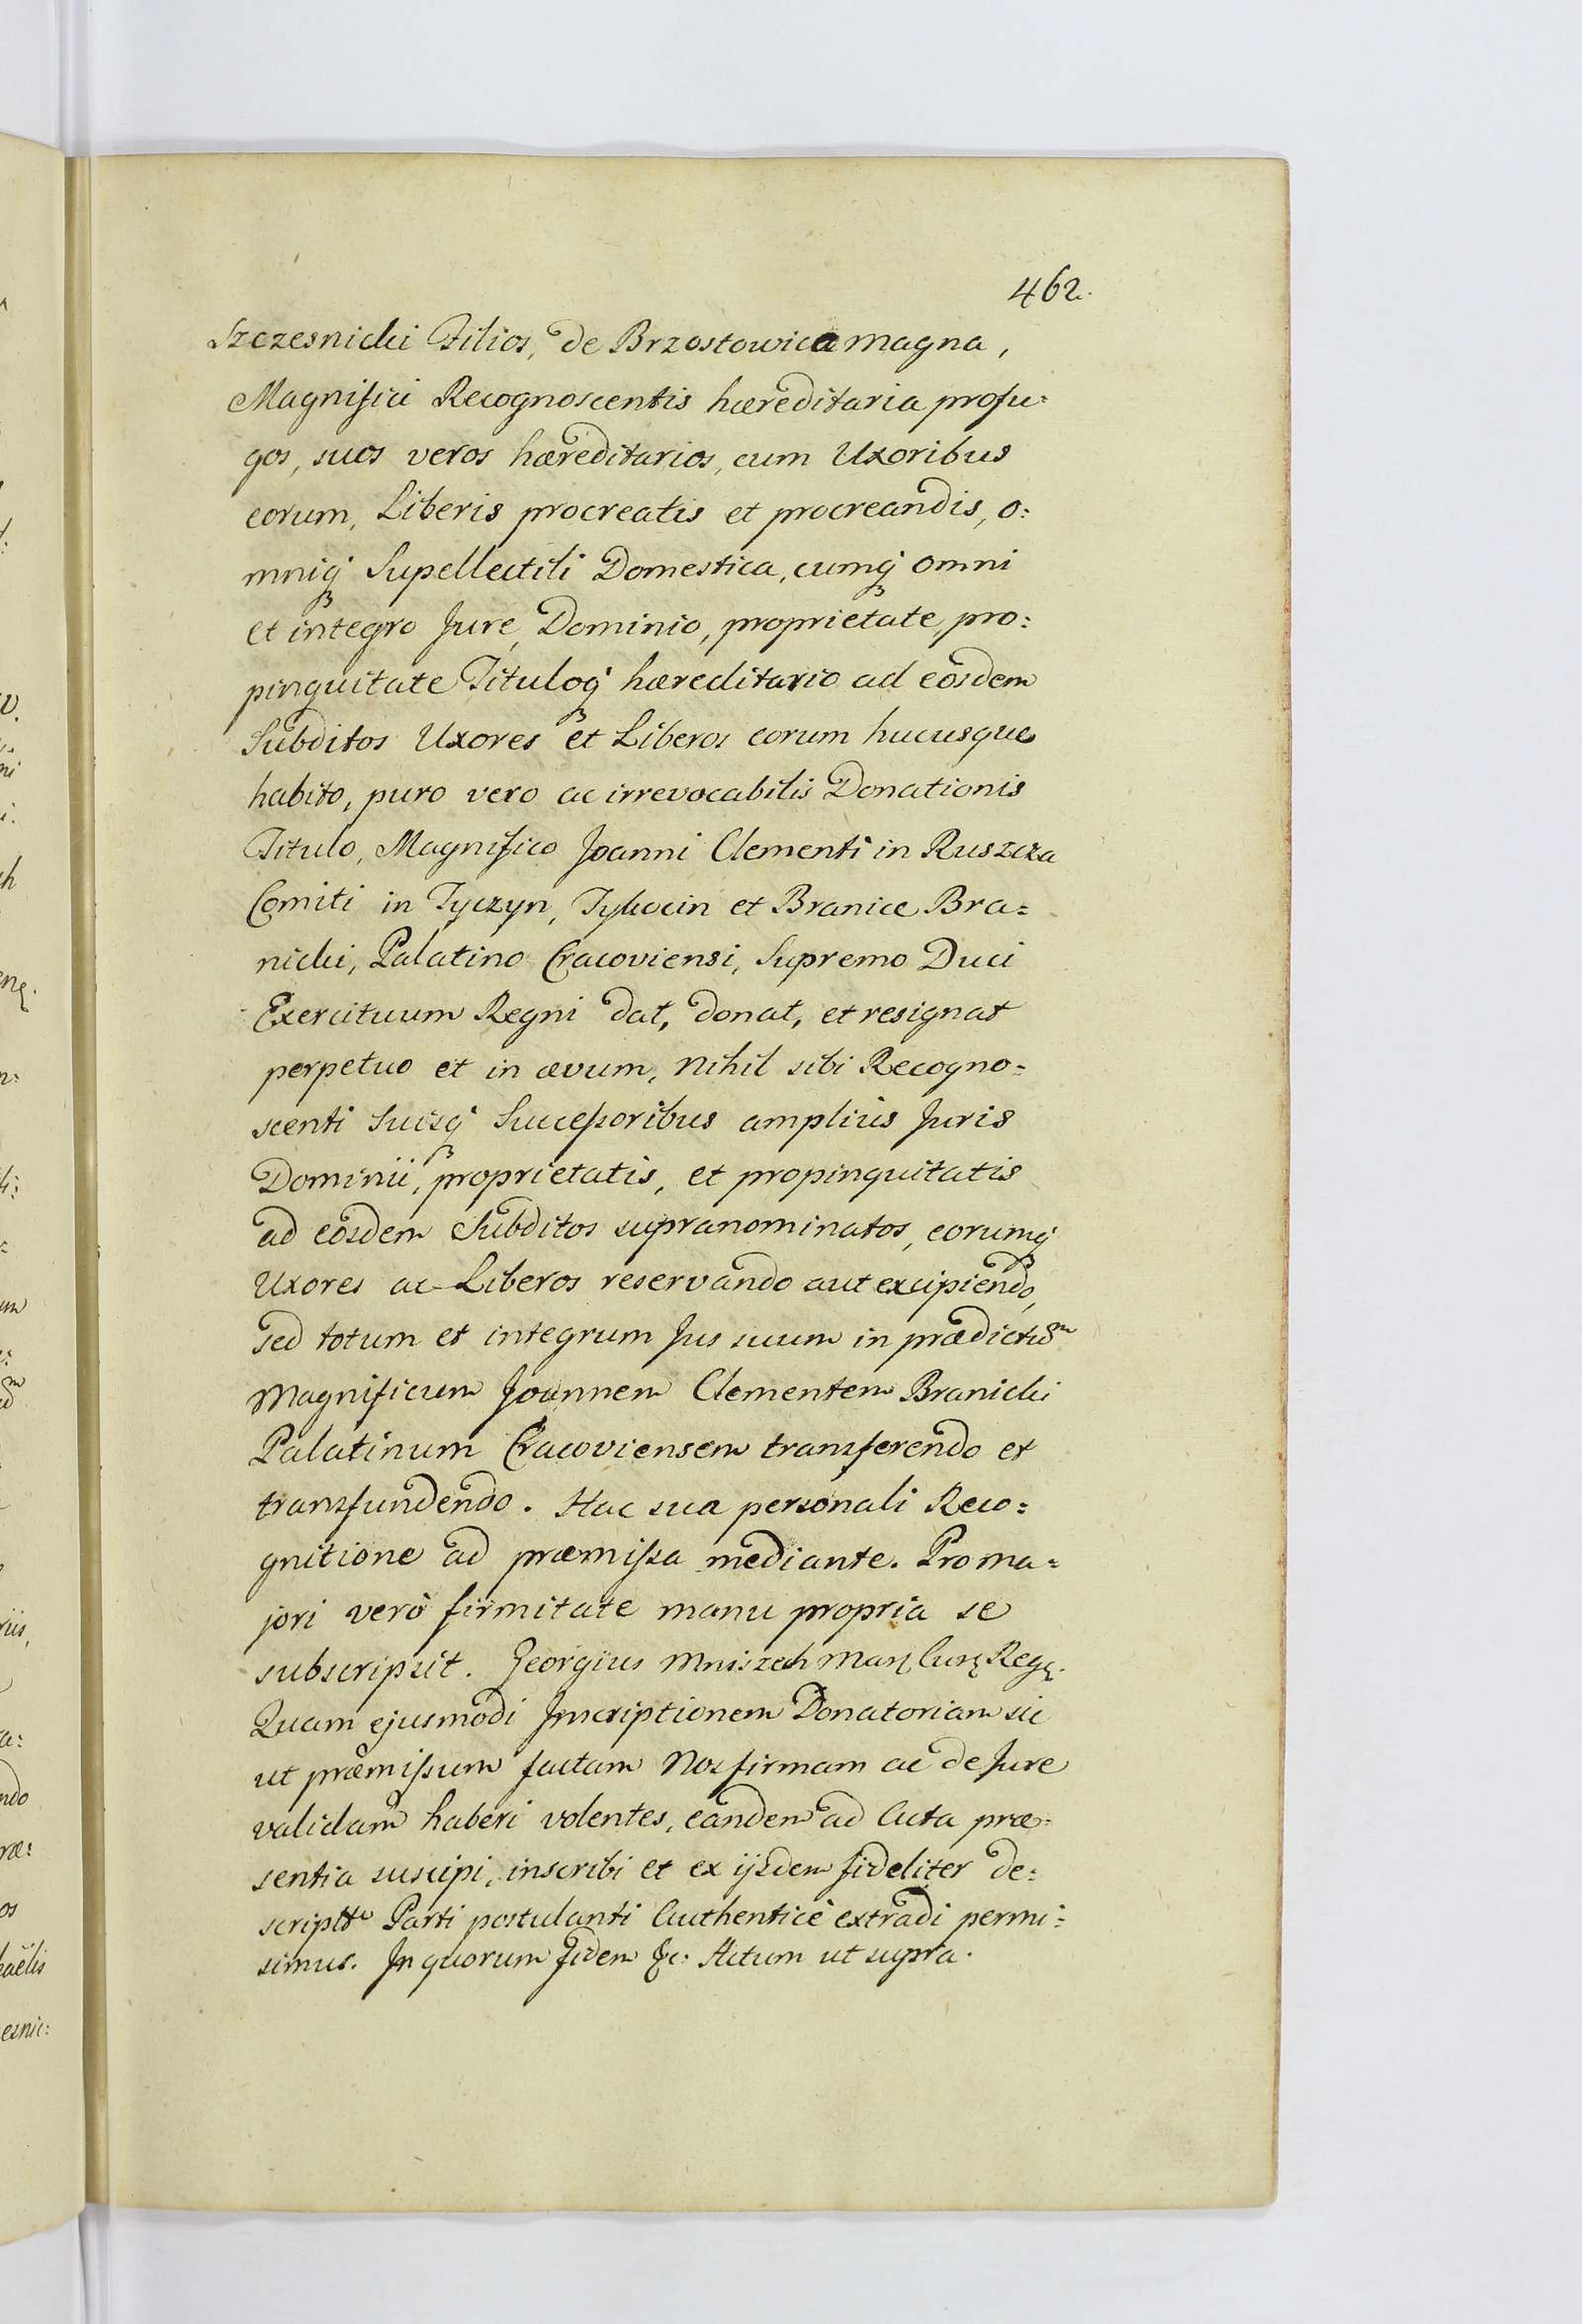 462.
Szczesnicki Filios, de Brzostowica magna,
Magnifici Recognoscentis hæreditaria profu:
gos, suos veros hæreditarios, cum Uxoribus
eorum, Liberis procreatis et procreandis, o:
mniq́ Supellectili Domestica, cumq́ omni
et integro Jure, Dominio, proprietate, pro:
pinquitate Tituloq́ hæreditario ad eosdem
Subditos Uxores et Liberos eorum hucusque
habito, puro vero ac irrevocabilis Donationis
Titulo, Magnifico Joanni Clementi in Ruszcza
Comiti in Tyczyn, Tykocin et Branice Bra=
nicki, Palatino Cracoviensi, Supremo Duci
Exercituum Regni dat, donat, et resignat
perpetuo et in ævum, nihil sibi Recogno=
scenti Suisq́ Successoribus amplius Juris
Dominii, proprietatis, et propinquitatis
ad eosdem Subditos supranominatos, eorumq́
Uxores ac Liberos reservando aut excipiendo,
sed totum et integrum Jus suum in prædictum
Magnificum Joannem Clementem Branicki
Palatinum Cracoviensem transferendo et
transfundendo. Hac sua personali Reco=
gnitione ad præmissa mediante. Pro ma=
jori verò firmitate manu propria se
subscripsit. Georgius Mniszech Mar. Curę Regę.
Quam ejusmodi Inscriptionem Donatoriam sic
ut præmissum factam Nos firmam ac de Jure
validam haberi volentes, eandem ad Acta præ=
sentia suscipi, inscribi et ex ijsdem fideliter de:
script Parti postulanti Authenticè extradi permi:
simus. In quorum fidem &c: Actum ut supra.